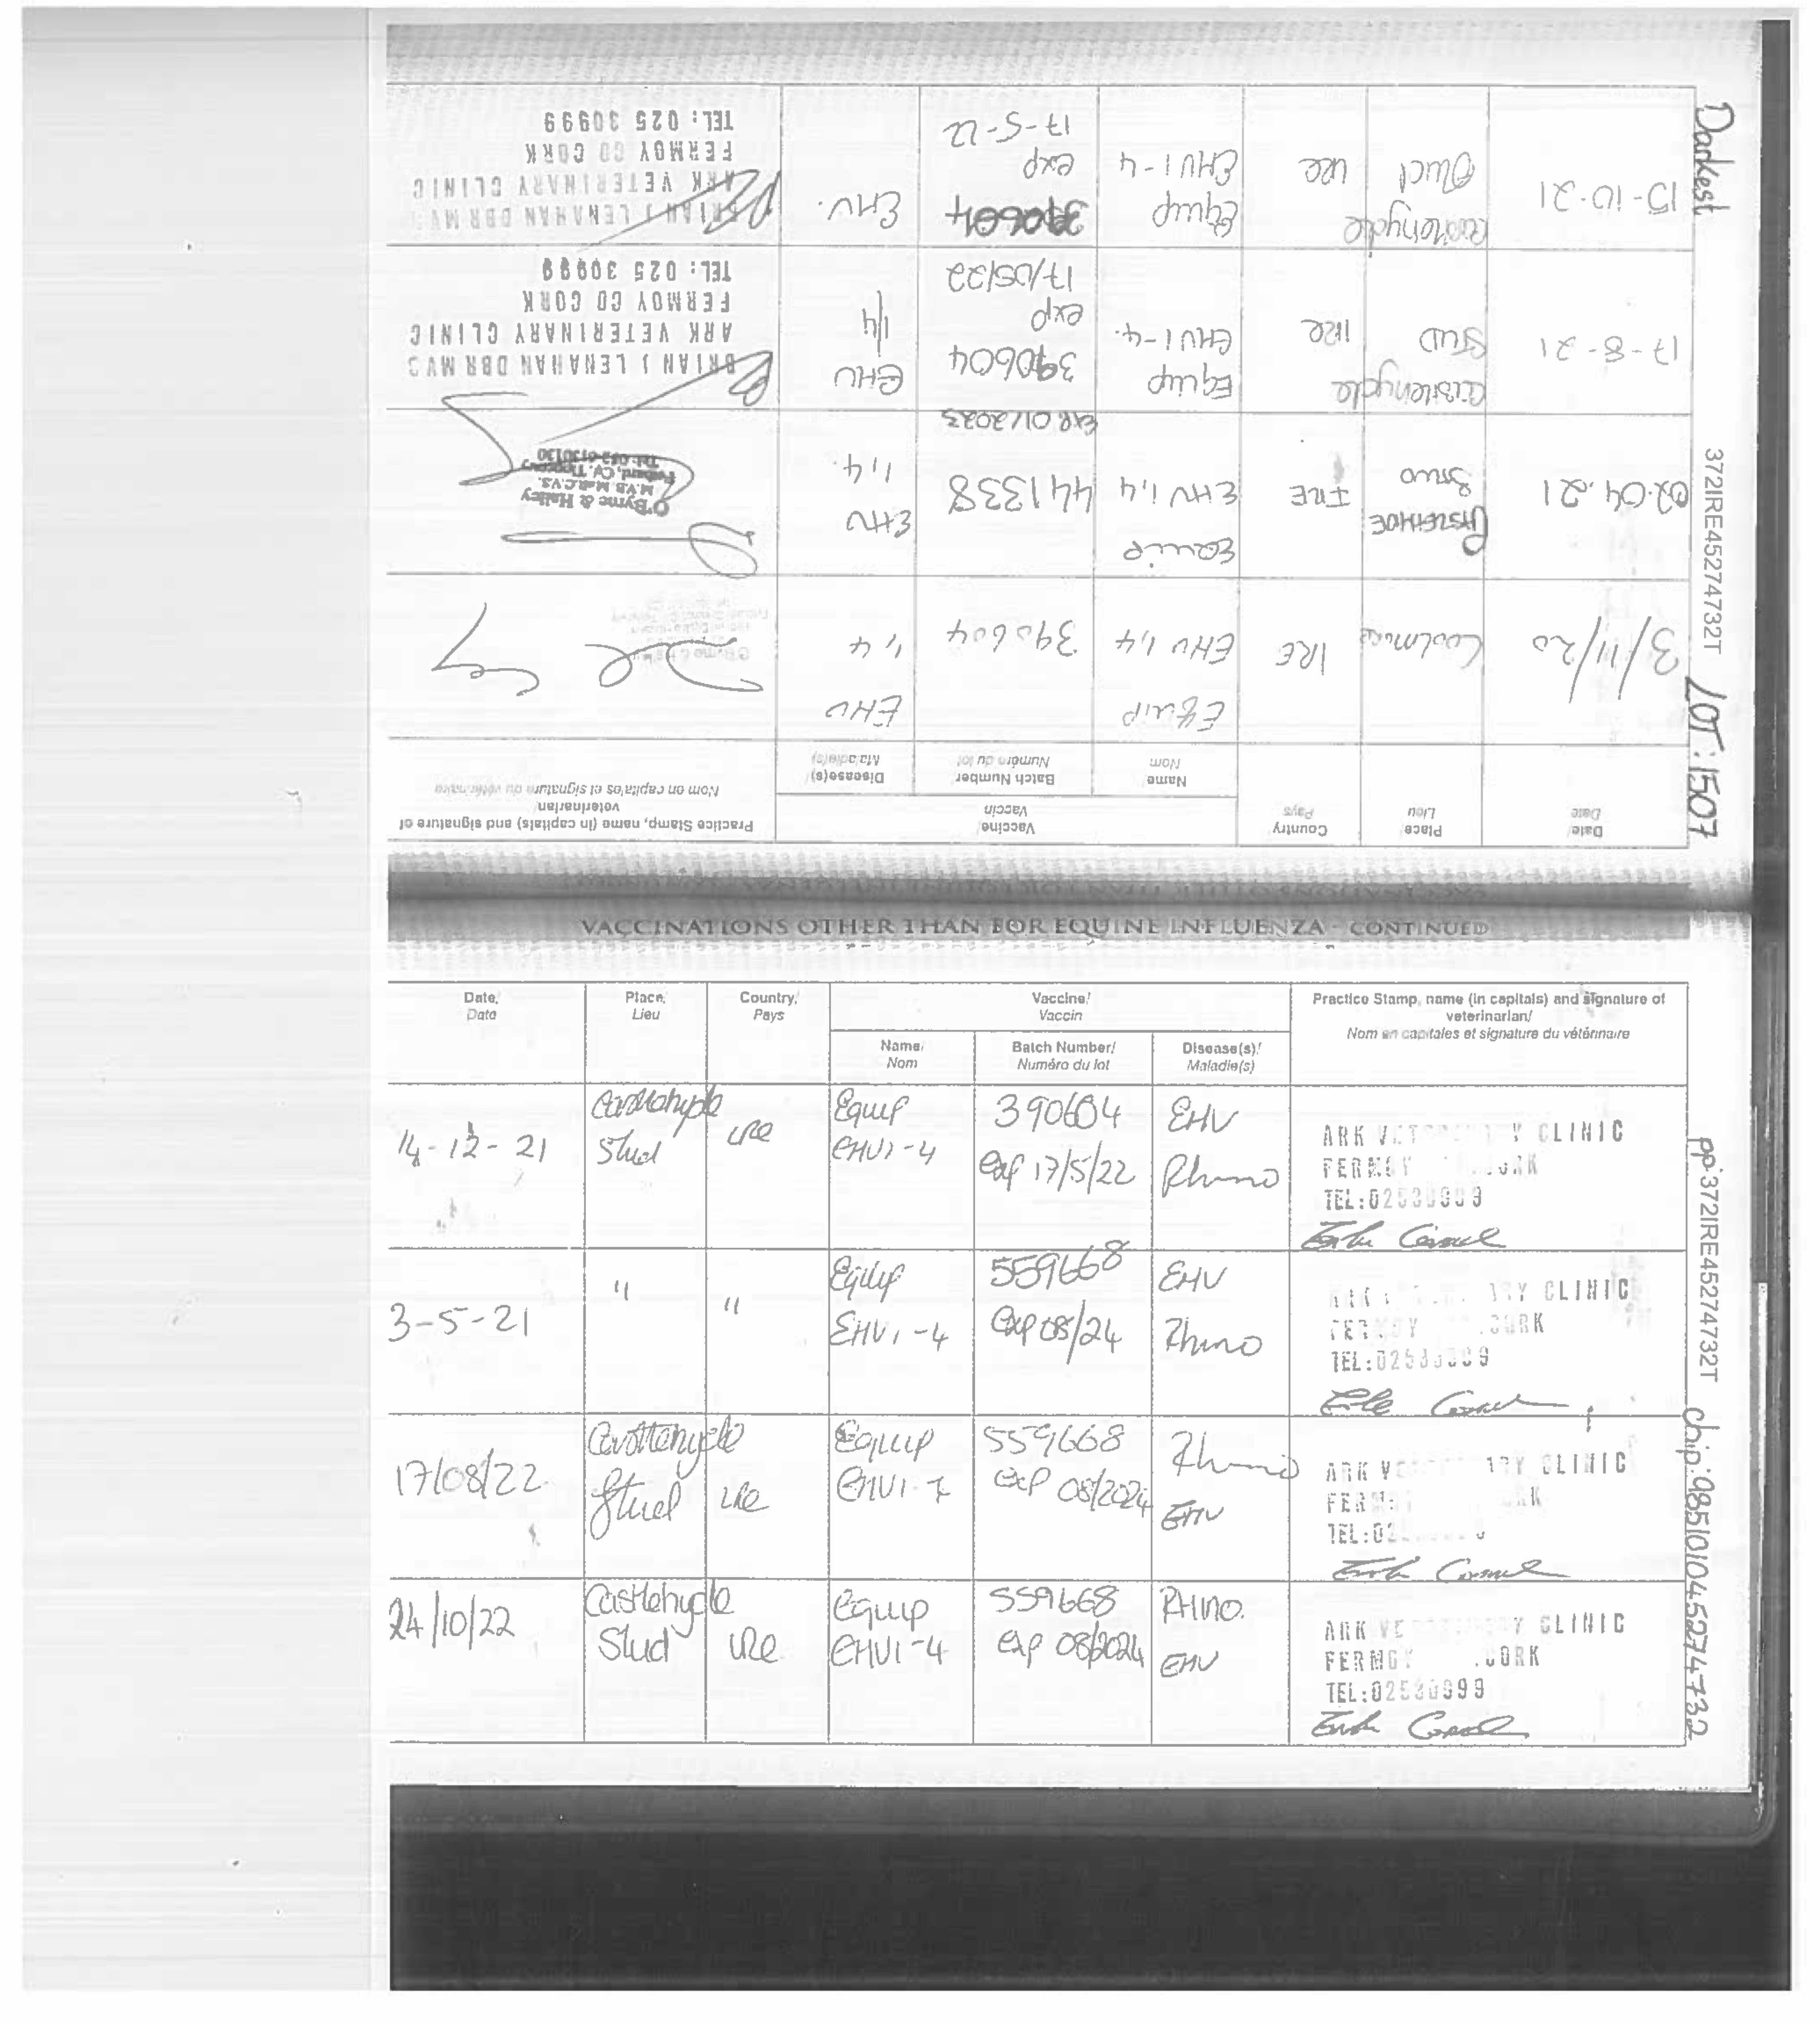 Darkest
372IRE45274732T
LOT: 1507
Date/
Date
Place
Lieu
Country
Pays
Vaccine/
Vaccin
Name
Nom
Batch Number/
Numéro du lot
Disease(s)
Maladie(s)
Practice Stamp, name (in capitals) and signature of
veterinarian/
Nom en capitales et signature du vétérinaire
3/11/20
Coolmore
IRE
Equip
EHV 1,4
390604
EHV
1,4
02.04.21
STUD
IRE
Equip
EHV 1,4
441338
EXP 01/2023
EHV
1,4
O'Byrne & Halley
M.V.B. M.R.C.V.S.
Fethard, Co. Tipperary
17-8-21
Castlehyde
STUD
IRE
Equip
EHV1-4.
390604
exp
17/05/22
EHV
1/4
BRIAN J LENAHAN DBR MVS
ARK VETERINARY CLINIC
FERMOY CO CORK
TEL: 025 30999
15-10-21
Castlehyde
Stud
IRE
Equip
EHV1-4
390604
exp
17-5-22
EHV.
BRIAN J LENAHAN DBR MVS
ARK VETERINARY CLINIC
FERMOY CO CORK
TEL: 025 30999
VACCINATIONS OTHER THAN FOR EQUINE INFLUENZA - CONTINUED
Date/
Date
Place/
Lieu
Country/
Pays
Vaccine/
Vaccin
Name/
Nom
Batch Number/
Numéro du lot
Disease(s)/
Maladie(s)
Practice Stamp, name (in capitals) and signature of
veterinarian/
Nom en capitales et signature du vétérinaire
14-12-21
Castlehyde
Stud
IRE
Equip
EHV1-4
390604
exp 17/5/22
EHV
Rhino
ARK CLINIC
FERMOY CORK
TEL:02530999
3-5-21
"
"
Equip
EHV1-4
559668
exp 08/24
EHV
Rhino
CLINIC
CORK
TEL:02530999
17/08/22
Castlehyde
Stud
IRE
Equip
EHV1-4
559668
exp 08/2024
Rhino
EHV
ARK CLINIC
24/10/22
Castlehyde
Stud
IRE
Equip
EHV1-4
559668
exp 08/2024
RHINO.
EHV
ARK CLINIC
FERMOY CORK
TEL:02530999
pp:372IRE45274732T
chip:985101045274732